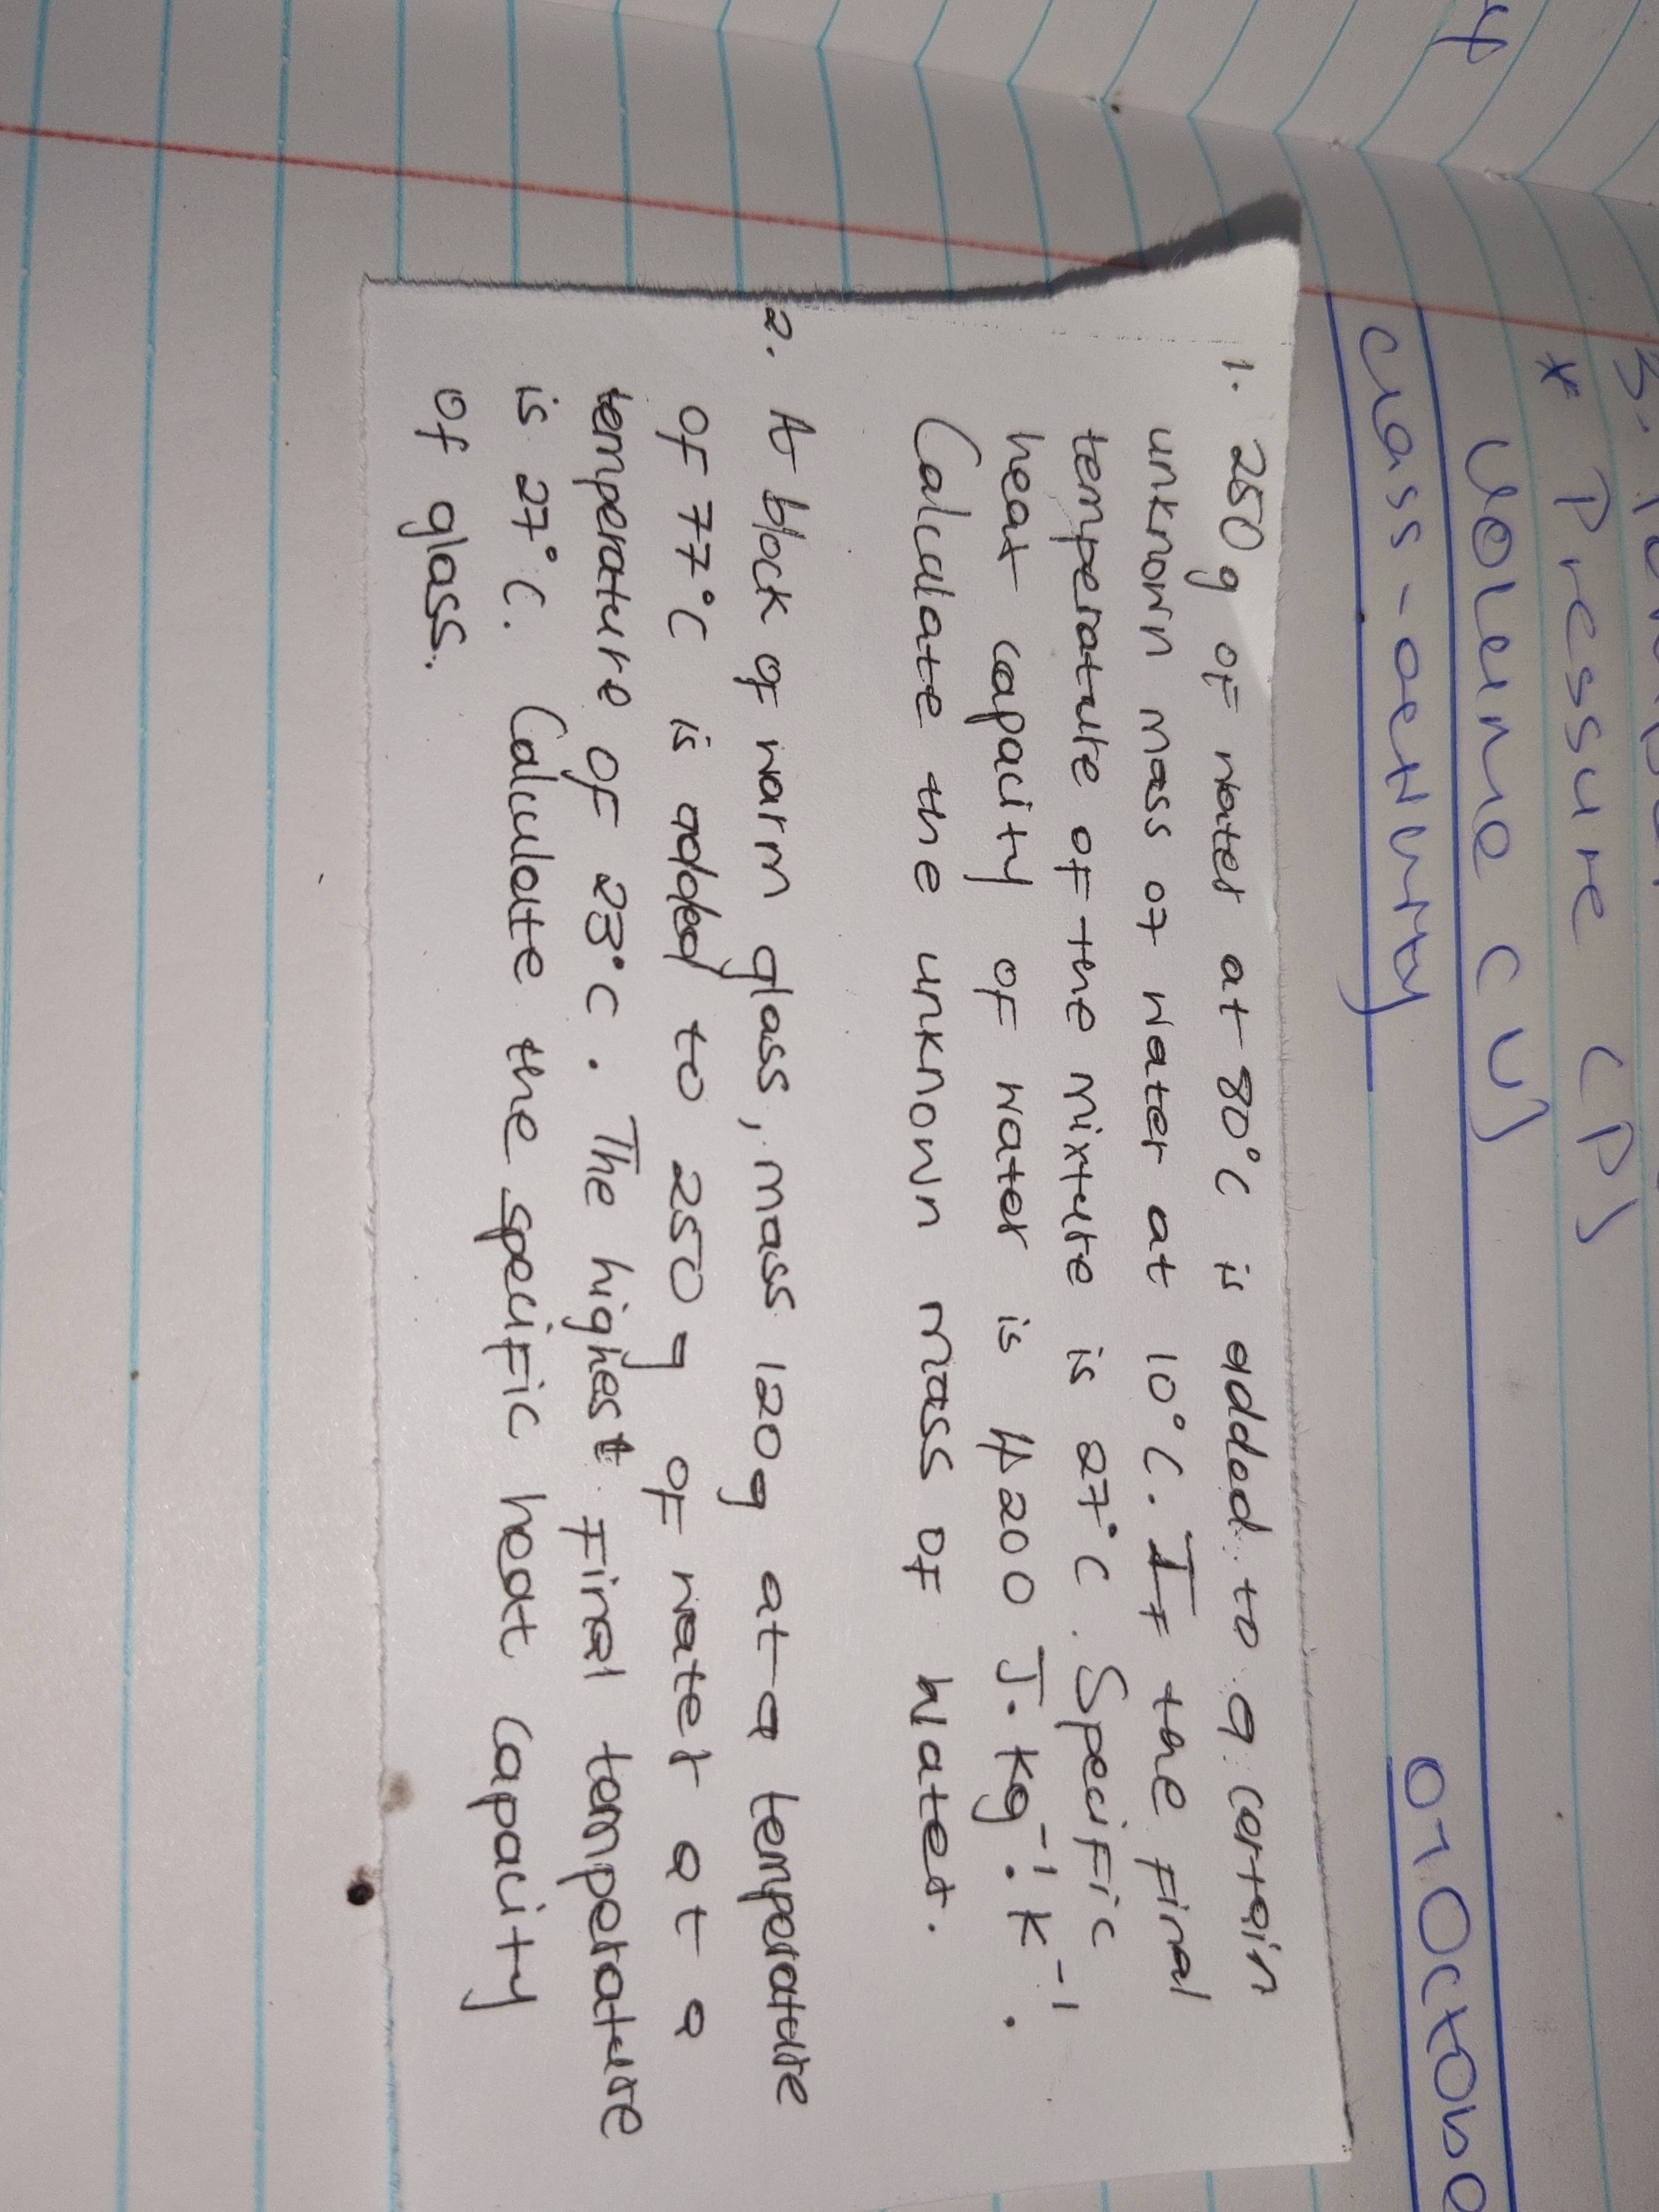 * Pressure (P)
Volume (V)
class-activity
1. 250 g of water at 80°C is added to a certain
unknown mass of water at 10°C. If the final
temperature of the mixture is 27°C. Specific
heat capacity of water is 4200 J.kg⁻¹.K⁻¹.
Calculate the unknown mass of water.
2. A block of warm glass, mass 120g at a temperature
of 77°C is added to 250 g of water at a
temperature of 23°C. The highest final temperature
is 27°C. Calculate the specific heat capacity
of glass.